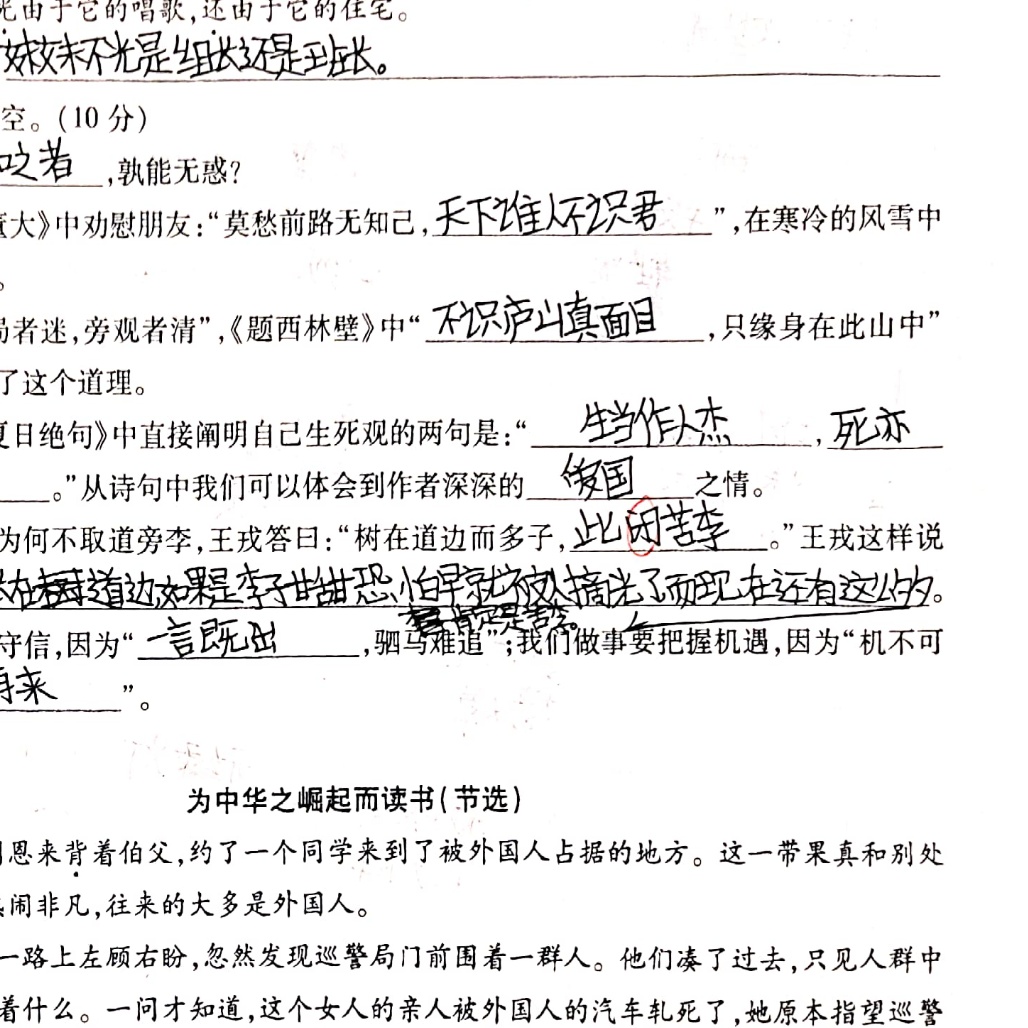 光由于它的唱歌,还由于它的住宅。
妹妹不光是组长还是班长。
空。(10 分)
之者,孰能无惑?
董大》中劝慰朋友:“莫愁前路无知己,天下谁人不识君”,在寒冷的风雪中
。
局者迷,旁观者清”,《题西林壁》中“不识庐山真面目,只缘身在此山中”
了这个道理。
夏日绝句》中直接阐明自己生死观的两句是:“生当作人杰,死亦
。”从诗句中我们可以体会到作者深深的爱国之情。
为何不取道旁李,王戎答曰:“树在道边而多子,此闭苦李。”王戎这样说
在道边如果是李子甘甜恐怕早就被人摘光了而现在还有这么的。
肯定是苦李。
守信,因为“一言既出,驷马难追”;我们做事要把握机遇,因为“机不可
再来”。
为中华之崛起而读书(节选)
周恩来背着伯父,约了一个同学来到了被外国人占据的地方。这一带果真和别处
热闹非凡,往来的大多是外国人。
一路上左顾右盼,忽然发现巡警局门前围着一群人。他们凑了过去,只见人群中
着什么。一问才知道,这个女人的亲人被外国人的汽车轧死了,她原本指望巡警